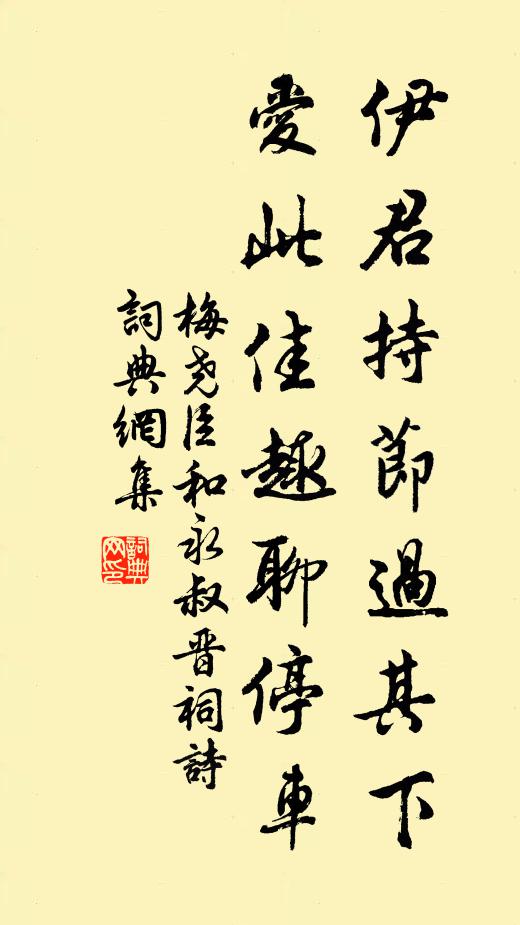 伊君持節過其下
愛此佳趣聊停車
梅堯臣和永叔晋祠詩
詞典網集
詞典網印